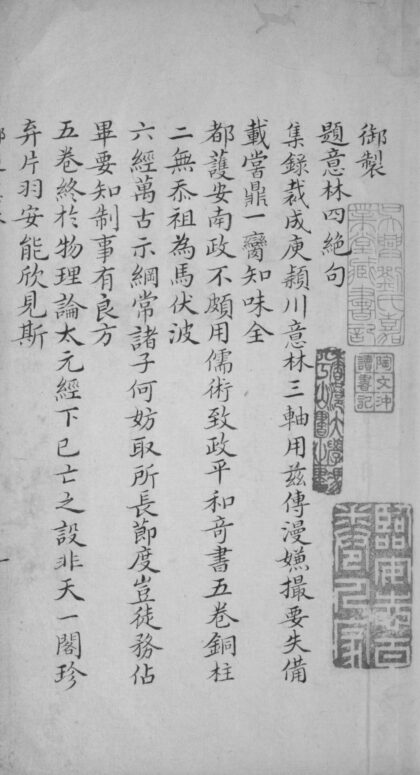 御製
題意林四絶句
集錄裁成庾潁川意林三軸用茲傳漫嫌撮要失備
載嘗鼎一臠知味全
都護安南政不頗用儒術致政平和奇書五卷銅柱
二無忝祖為馬伏波
六經萬古示綱常諸子何妨取所長節度豈徒務佔
畢要知制事有良方
五卷終於物理論太元經下已亡之設非天一閣珍
弃片羽安能欣見斯
吳興劉氏嘉
業堂藏書記
陶文沖
讀書記